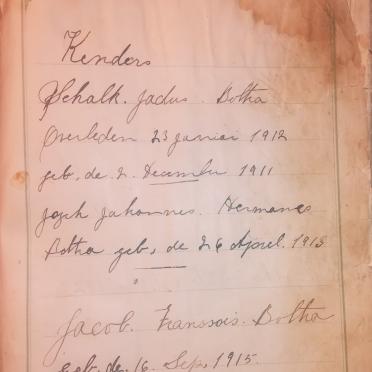 Kenders
Schalk. Jadus. Botha
Overleden 23 Januari 1912
geb, de 2. December 1911
Joseh Johannes. Hermanes
Botha geb, de 26 April. 1913
Jacob. Franssois. Botha
geb. de. 16. Sep, 1915.